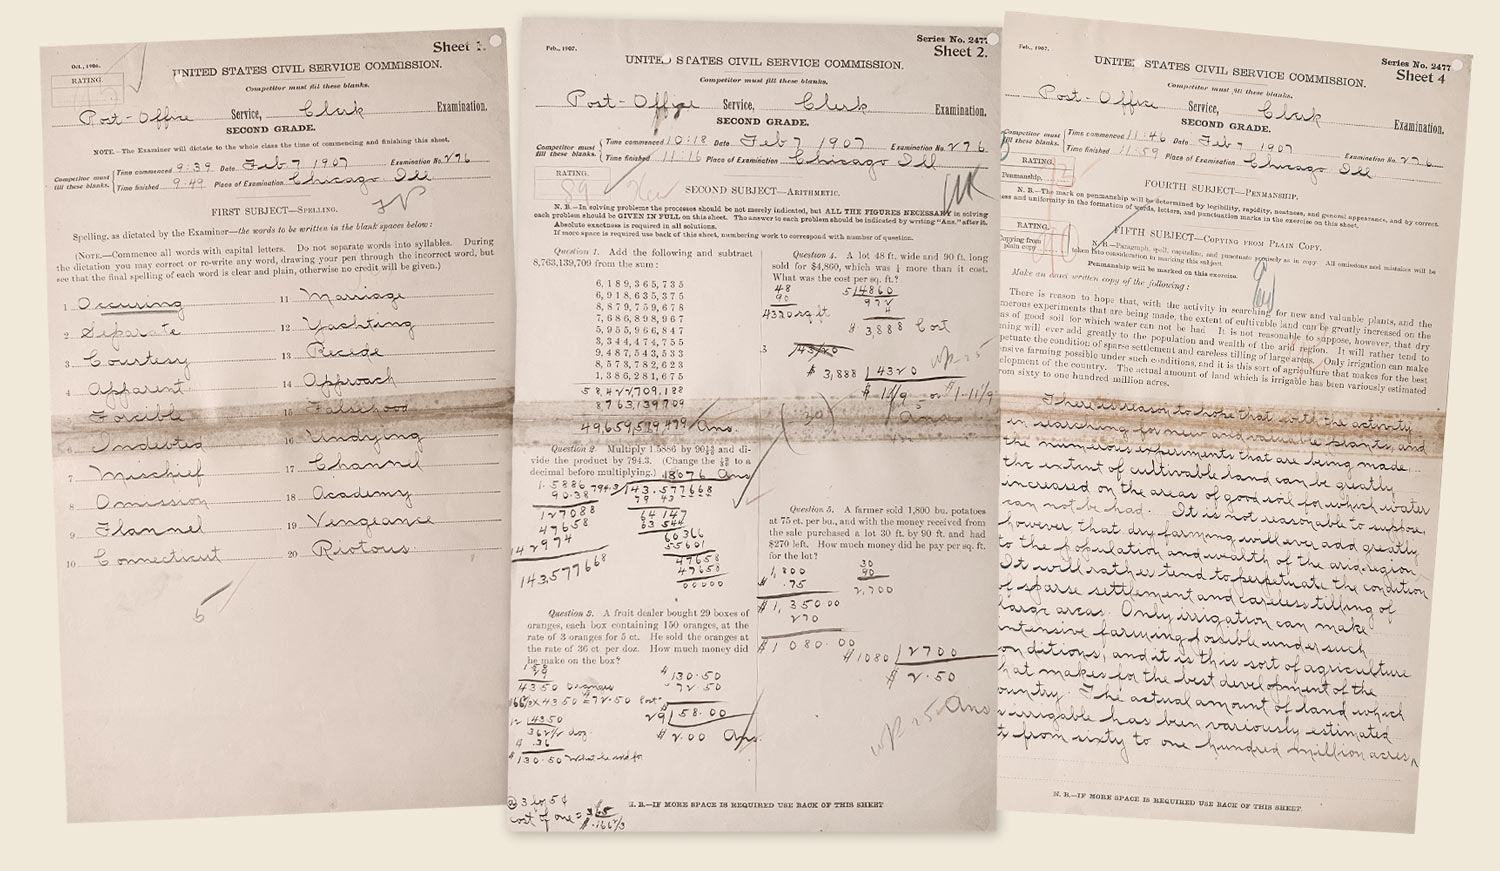 Sheet 1.
Oct., 1906.
RATING.
UNITED STATES CIVIL SERVICE COMMISSION.
Competitor must fill these blanks.
Post-Office Service, Clerk Examination.
SECOND GRADE.
NOTE.—The Examiner will dictate to the whole class the time of commencing and finishing this sheet.
Competitor must fill these blanks. Time commenced 9:39 Date Feb 7 1907 Examination No. 276
Time finished 9:49 Place of Examination Chicago Ill
FIRST SUBJECT—Spelling.
Spelling, as dictated by the Examiner—the words to be written in the blank spaces below:
(NOTE.—Commence all words with capital letters. Do not separate words into syllables. During
the dictation you may correct or re-write any word, drawing your pen through the incorrect word, but
see that the final spelling of each word is clear and plain, otherwise no credit will be given.)
1 Occuring 11 Marriage
2 Separate 12 Yachting
3 Courtesy 13 Recede
4 Apparent 14 Approach
5 Forcible 15 Falsehood
6 Indebted 16 Undying
7 Mischief 17 Channel
8 Omission 18 Academy
9 Flannel 19 Vengeance
10 Connecticut 20 Riotous.
5
Series No. 2477
Feb., 1907.
Sheet 2.
UNITED STATES CIVIL SERVICE COMMISSION.
Competitor must fill these blanks.
Post-Office Service, Clerk Examination.
SECOND GRADE.
Competitor must fill these blanks. Time commenced 10:18 Date Feb 7 1907
Time finished 11:16 Place of Examination Chicago Ill Examination No. 276
RATING.
89
SECOND SUBJECT—Arithmetic.
N. B.—In solving problems the processes should be not merely indicated, but ALL THE FIGURES NECESSARY in solving
each problem should be GIVEN IN FULL on this sheet. The answer to each problem should be indicated by writing "Ans." after it.
Absolute exactness is required in all solutions.
If more space is required use back of this sheet, numbering work to correspond with number of question.
Question 1. Add the following and subtract
8,763,139,709 from the sum:
6,189,365,735
6,918,635,375
8,879,759,678
7,686,898,967
5,955,966,847
3,344,474,755
9,487,543,533
8,573,782,623
1,386,281,675
58,422,709,188
8763,139709
49,659,579,479 Ans.
Question 2. Multiply 1.5886 by 90 and di-
vide the product by 794.3. (Change the to a
decimal before multiplying.) .18076 Ans
1.5886 794.3 143.577668
90.38 79 43
127088 64 147
47658 63 544
142974 60366
143.577668 55601
47658
47658
00000
Question 3. A fruit dealer bought 29 boxes of
oranges, each box containing 150 oranges, at the
rate of 3 oranges for 5 ct. He sold the oranges at
the rate of 36 ct per doz. How much money did
he make on the box?
150
29
4350 Oranges
.01 2/3 X 4350 = 72.50 Cost
12 4350
362 1/2 doz
$ .36
$130.50 What he sold for
$130.50
72 50
29 58.00
$2.00 Ans.
@ 3 for 5¢
cost of one =
Question 4. A lot 48 ft. wide and 90 ft. long
sold for $4,860, which was 1/4 more than it cost.
What was the cost per sq. ft.?
48
90
4320 sq ft
5 4860
972
4
$3,888 Cost
$3,888 4320
Ans
Question 5. A farmer sold 1,800 bu. potatoes
at 75 ct. per bu., and with the money received from
the sale purchased a lot 30 ft. by 90 ft. and had
$270 left. How much money did he pay per sq. ft.
for the lot?
1,800
$ .75
$1,350.00
270
$1080.00
30
90
2,700
$1080 2700
$2.50
Ans
N. B.—IF MORE SPACE IS REQUIRED USE BACK OF THIS SHEET
Series No. 2477
Feb., 1907.
Sheet 4
UNITED STATES CIVIL SERVICE COMMISSION.
Competitor must fill these blanks.
Post-Office Service, Clerk Examination.
SECOND GRADE.
Competitor must fill these blanks. Time commenced 11:46 Date Feb 7 1907
Time finished 11:59 Place of Examination Chicago Ill Examination No. 276
RATING.
Penmanship.
FOURTH SUBJECT—Penmanship.
N. B.—The mark on penmanship will be determined by legibility, rapidity, neatness, and general appearance, and by correct-
ness and uniformity in the formation of words, letters, and punctuation marks in the exercise on this sheet.
RATING.
Copying from plain copy
FIFTH SUBJECT—Copying from Plain Copy.
N. B.—Paragraph, spell, capitalize, and punctuate precisely as in copy. All omissions and mistakes will be
taken into consideration in marking this subject.
Penmanship will be marked on this exercise.
Make an exact written copy of the following:
There is reason to hope that, with the activity in searching for new and valuable plants, and the
numerous experiments that are being made, the extent of cultivable land can be greatly increased on the
areas of good soil for which water can not be had. It is not reasonable to suppose, however, that dry
farming will ever add greatly to the population and wealth of the arid region. It will rather tend to
perpetuate the condition of sparse settlement and careless tilling of large areas. Only irrigation can make
intensive farming possible under such conditions, and it is this sort of agriculture that makes for the best
development of the country. The actual amount of land which is irrigable has been variously estimated
from sixty to one hundred million acres.
There is reason to hope that with the activity
in searching for new and valuable plants, and
the numerous experiments that are being made,
the extent of cultivable land can be greatly
increased on the areas of good soil for which water
can not be had. It is not reasonable to suppose,
however that dry farming will ever add greatly
to the population and wealth of the arid region
It will rather tend to perpetuate the condition
of sparse settlement and careless tilling of
large areas. Only irrigation can make
intensive farming possible under such
conditions, and it is this sort of agriculture
that makes for the best development of the
country. The actual amount of land which
is irrigable has been variously estimated
from sixty to one hundred million acres
N. B.—IF MORE SPACE IS REQUIRED USE BACK OF THIS SHEET